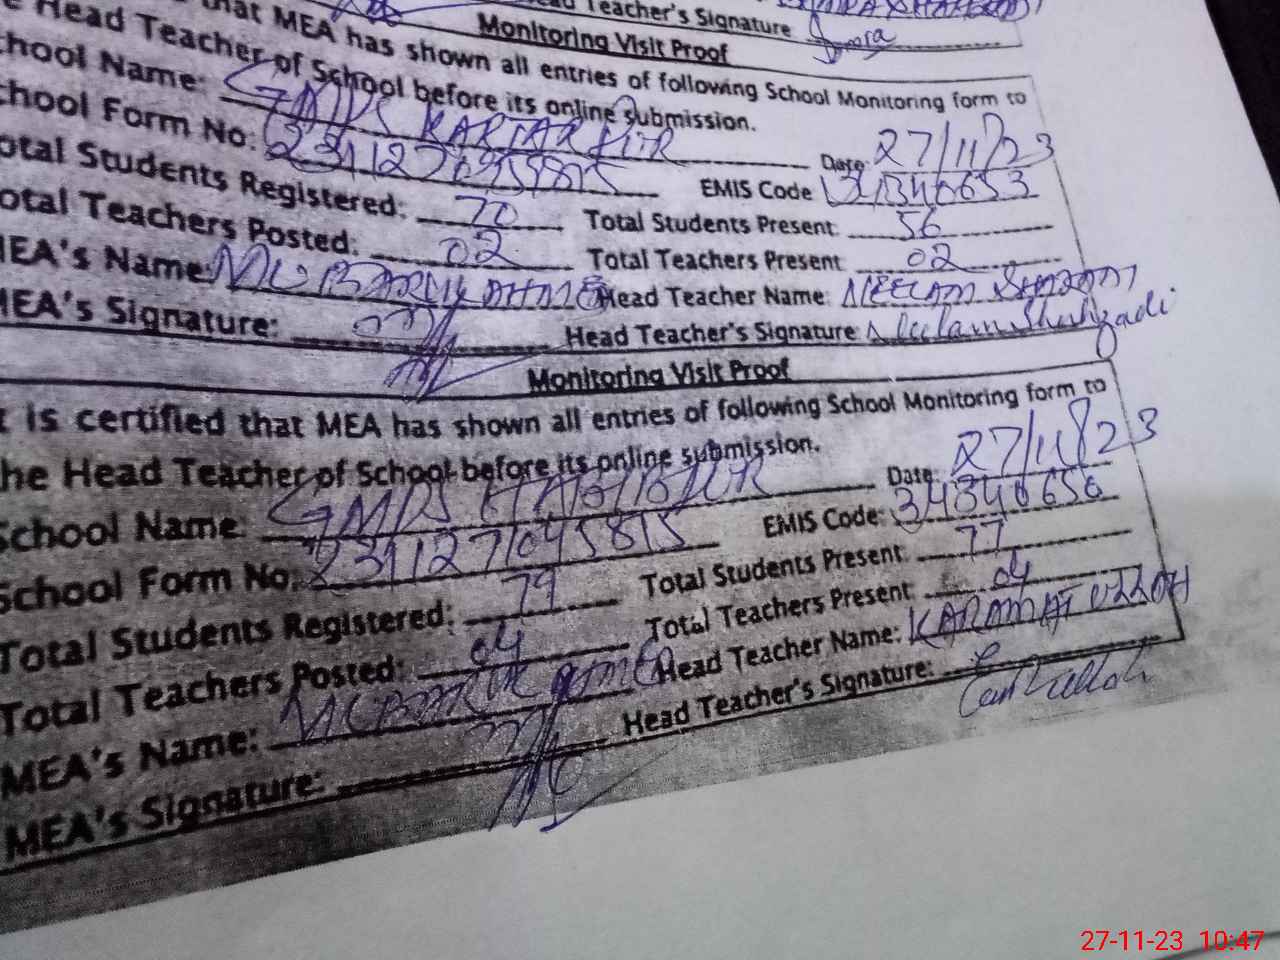 Head Teacher's Signature
Monitoring Visit Proof
that MEA has shown all entries of following School Monitoring form to
e Head Teacher of School before its online submission.
chool Name: GMPS KARTAR PUR Date: 27/11/23
chool Form No: EMIS Code
otal Students Registered: 70 Total Students Present: 56
otal Teachers Posted: 02 Total Teachers Present 02
MEA's Name: MUBARIK AHMED Head Teacher Name: NEELAM SHAHZADI
MEA's Signature: Head Teacher's Signature: Neelam Shahzadi
Monitoring Visit Proof
t is certified that MEA has shown all entries of following School Monitoring form to
he Head Teacher of School before its online submission.
School Name GMPS Date: 27/11/23
School Form No. EMIS Code: 34340656
Total Students Registered: 79 Total Students Present: 77
Total Teachers Posted: 04 Total Teachers Present: 04
MEA's Name: MUBARIK AHMED Head Teacher Name: KARAMAT ULLAH
MEA's Signature: Head Teacher's Signature:
27-11-23 10:47